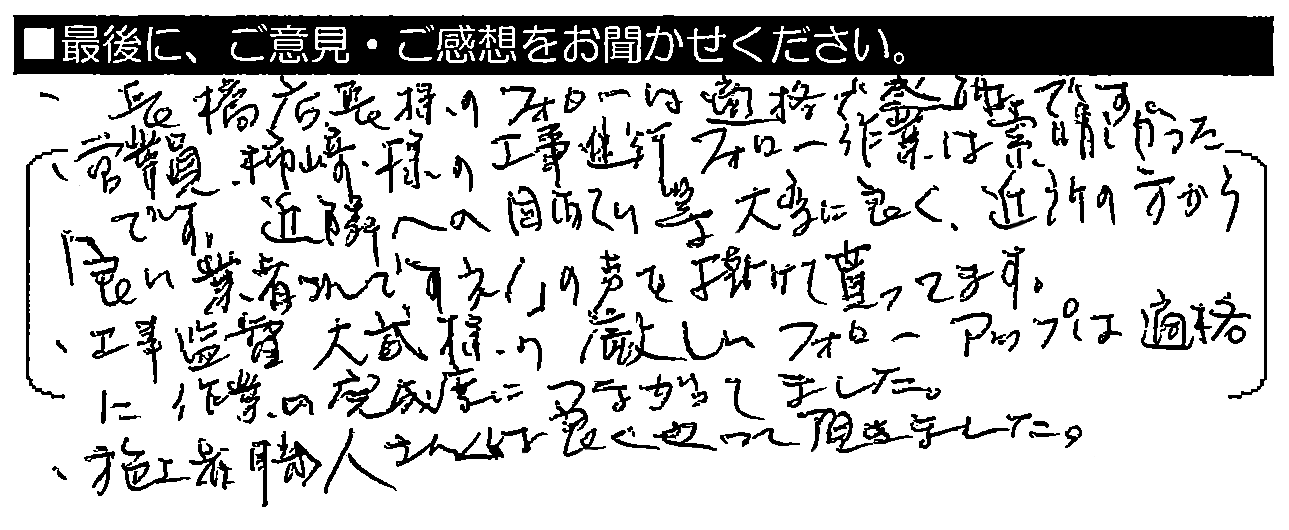 ■最後に、ご意見・ご感想をお聞かせください。
、長橋店長様のフォローは適格で
、営業員 柿崎様の工事進行フォロー作業は素晴しかった
です。近隣への 大変に良く、近所の方から
「良い業者さんですネ!」の声を掛けて貰ってます。
、工事監督 大蔵様の厳しいフォローアップは適格
に作業の完成度につながってました。
、施工者職人さん 良くやって頂きました。